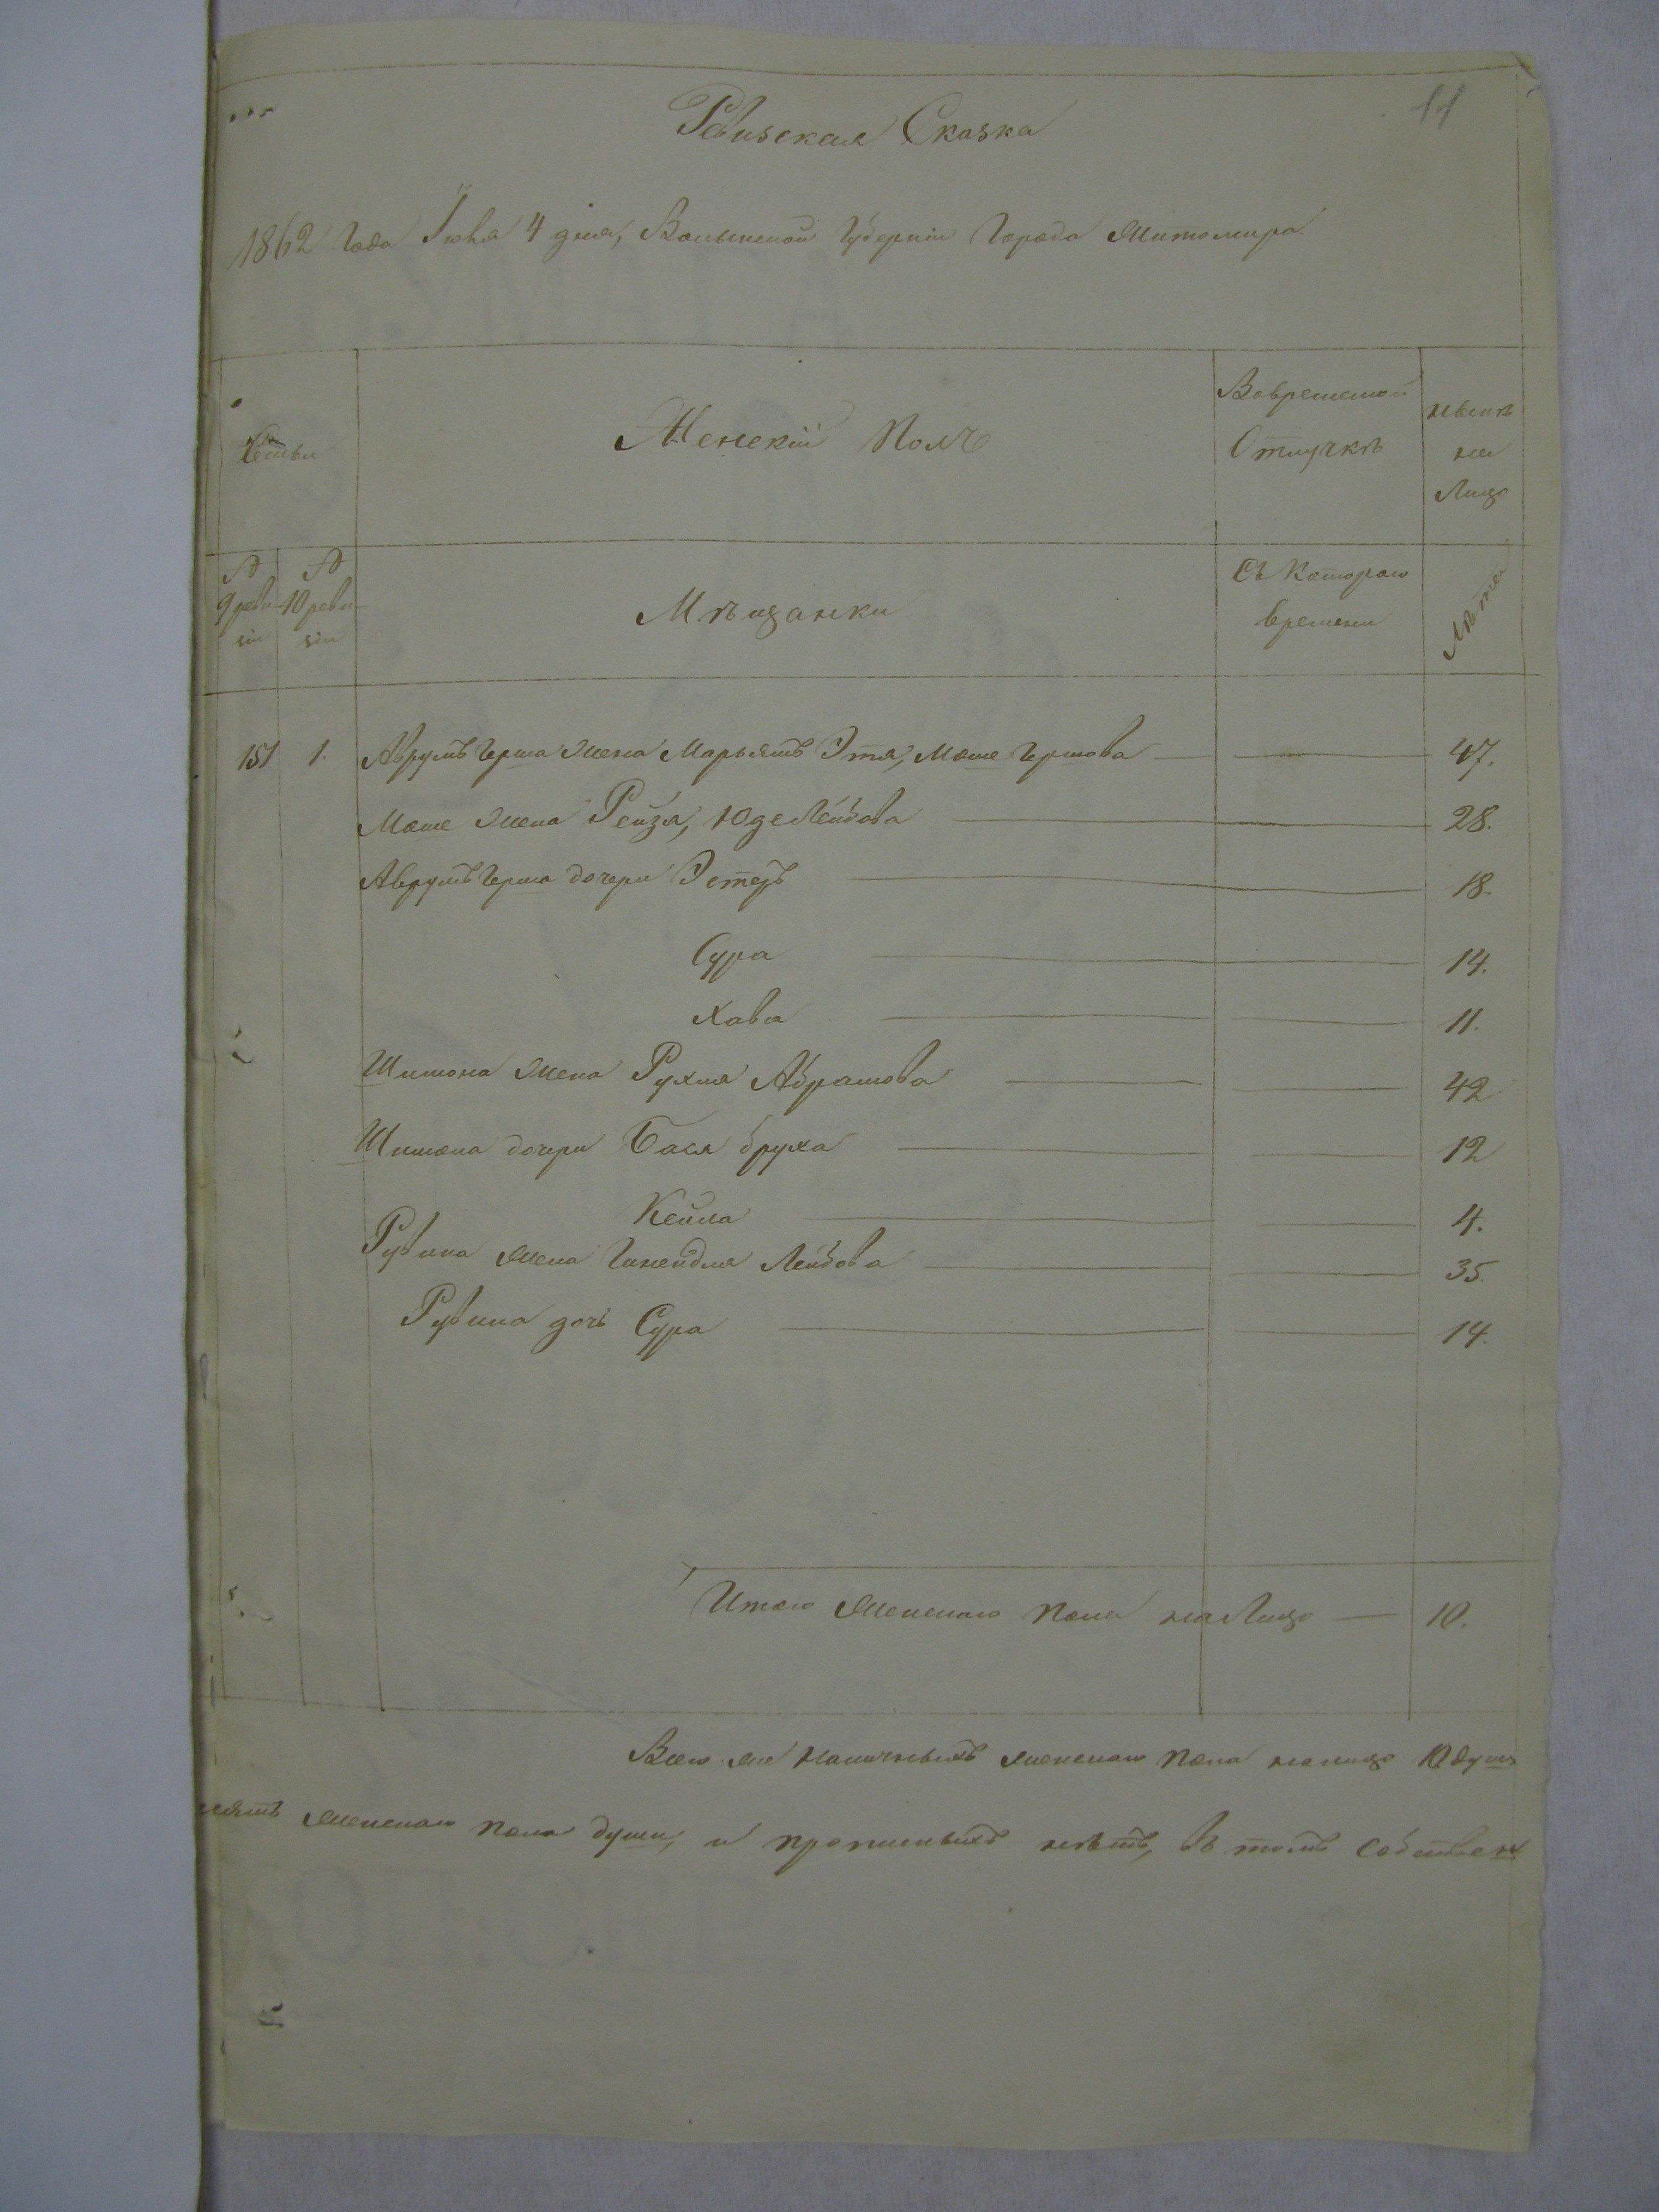 11
Ревизская Сказка
1862 года Іюня 4 дня, Волынской Губерніи Города Житомира
Женскій Полъ
Вовременной
Отлучкѣ
нынѣ
на
Лицо
№
9 реви-
зіи
№
10 реви-
зіи
Мѣщанки
Съ котораго
времени
Лѣта
151 1. Аврумъ Герша жена Марьямъ Этя, Моше Гершова 47.
Моше жена Рейзя, Юделейбова 28.
Аврумъ Герша дочери Эстеръ 18.
Сура 14.
Хава 11.
Шимона жена Рухля Абрамова 42
Шимона дочери Бася бруха 12
Кейла 4.
Рувина жена Гинендля Лейбова 35.
Рувина дочь Сура 14.
Итого Женскаго Пола на Лицо 10.
Всего же наличныхъ женскаго пола на лицо 10 душъ
женскаго пола души, и прописныхъ нѣтъ, въ томъ собствен